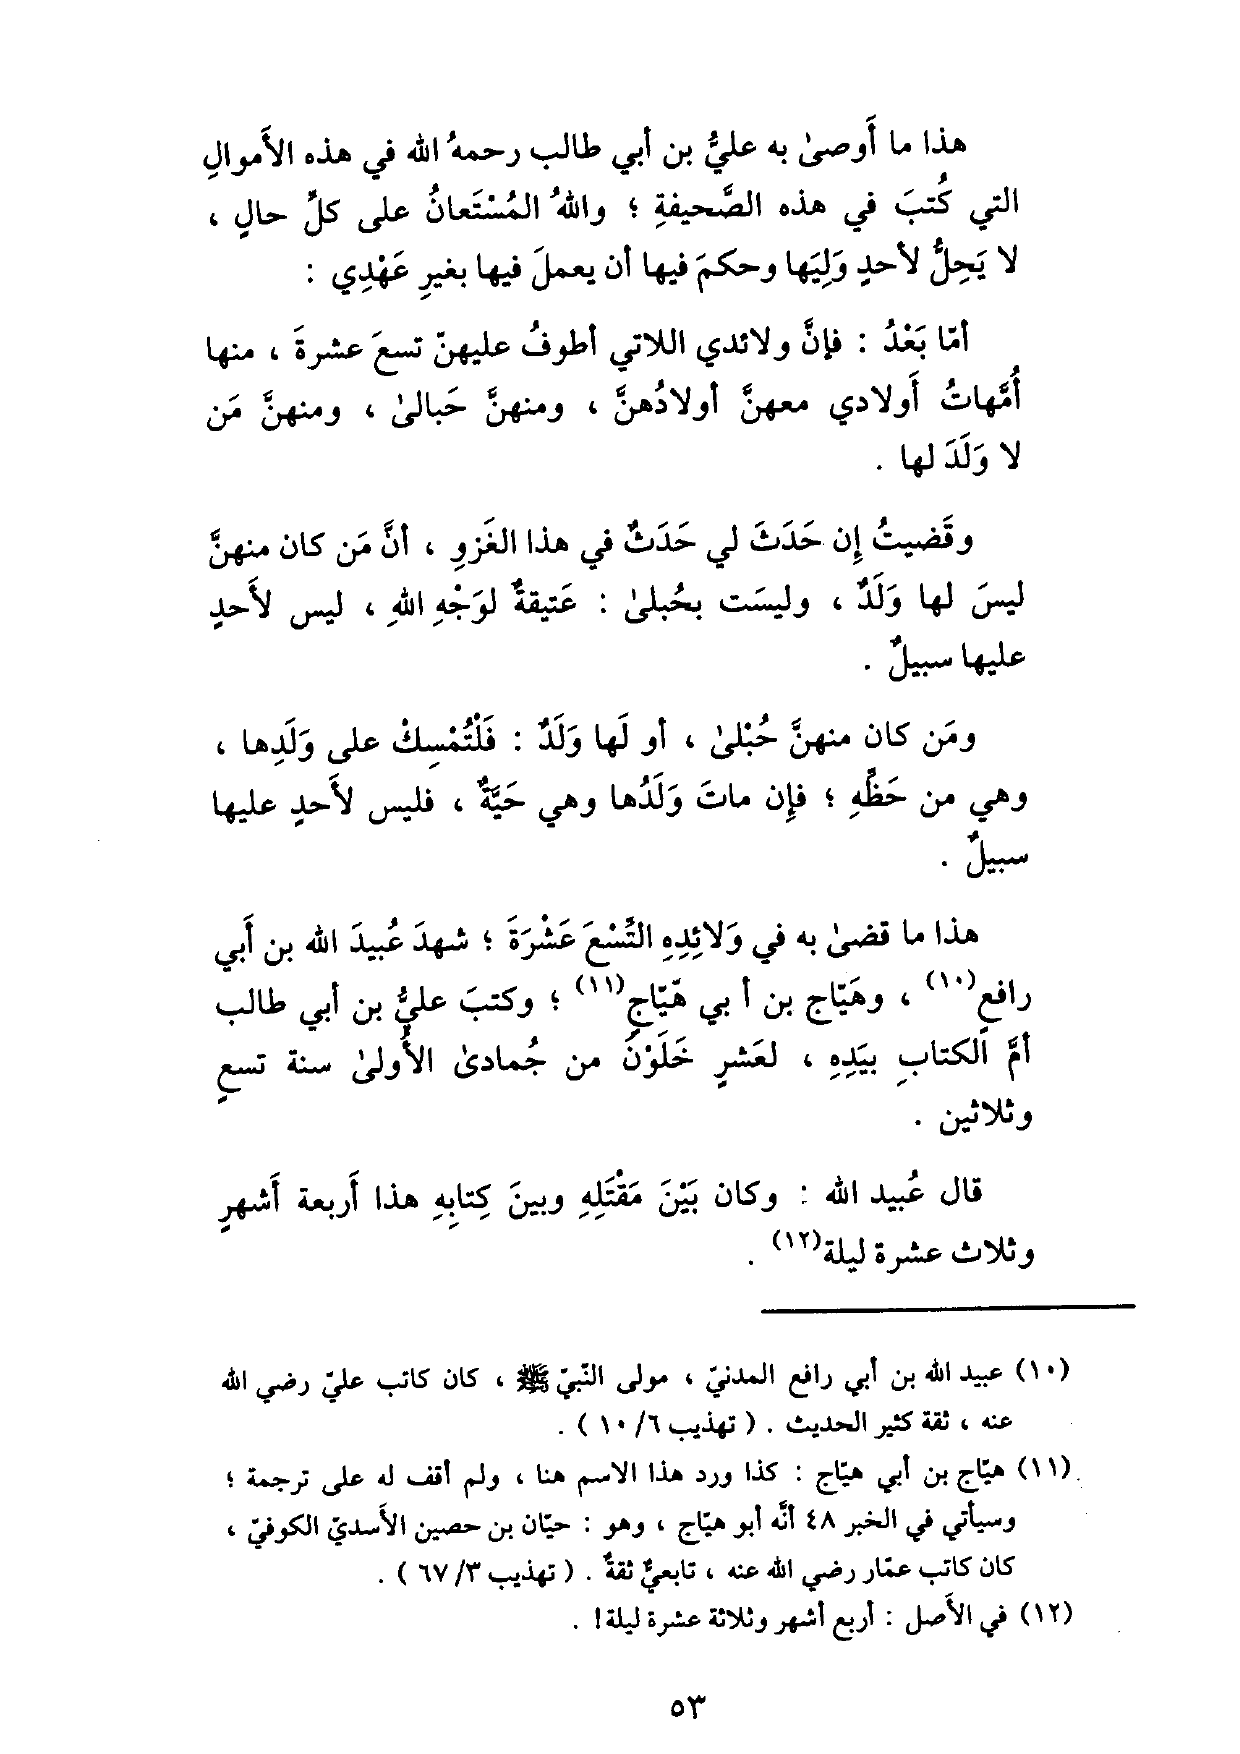 هذا ما أَوصىٰ به عليُّ بن أبي طالب رحمهُ الله في هذه الأَموالِ
التي كُتبَ في هذه الصَّحيفةِ ؛ واللهُ المُسْتَعانُ على كلِّ حالٍ ،
لا يَحِلُّ لأحدٍ وَلِيَها وحكمَ فيها أن يعملَ فيها بغيرِ عَهْدِي :
أمّا بَعْدُ : فإنَّ ولائدي اللاتي أطوفُ عليهنّ تسعَ عشرةَ ، منها
أُمَّهاتُ أَولادي معهنَّ أولادُهنَّ ، ومنهنَّ حَبالىٰ ، ومنهنَّ مَن
لا وَلَدَ لها .
وقَضيتُ إِن حَدَثَ لي حَدَثٌ في هذا الغَزوِ ، أنَّ مَن كان منهنَّ
ليسَ لها وَلَدٌ ، وليسَت بحُبلىٰ : عَتيقةٌ لوَجْهِ اللهِ ، ليس لأَحدٍ
عليها سبيلٌ .
ومَن كان منهنَّ حُبْلىٰ ، أو لَها وَلَدٌ : فَلْتُمْسِكْ على وَلَدِها ،
وهي من حَظِّهِ ؛ فإِن ماتَ وَلَدُها وهي حَيَّةٌ ، فليس لأَحدٍ عليها
سبيلٌ .
هذا ما قضىٰ به في وَلائِدِهِ التَّسْعَ عَشْرَةَ ؛ شهدَ عُبيدَ الله بن أَبي
رافع(١٠) ، وهَيّاج بن أ بي هَيّاجٍ(١١) ؛ وكتبَ عليُّ بن أبي طالب
أمَّ الكتابِ بيَدِهِ ، لعَشرٍ خَلَوْنَ من جُمادىٰ الأُولىٰ سنة تسعٍ
وثلاثين .
قال عُبيد الله : وكان بَيْنَ مَقْتَلِهِ وبينَ كِتابِهِ هذا أَربعة أَشهرٍ
وثلاث عشرة ليلة(١٢) .
(١٠) عبيد الله بن أبي رافع المدنيّ ، مولى النّبيّ ﷺ ، كان كاتب عليّ رضي الله
عنه ، ثقة كثير الحديث . ( تهذيب ٦/ ١٠ ) .
(١١) هيّاج بن أبي هيّاج : كذا ورد هذا الاسم هنا ، ولم أقف له على ترجمة ؛
وسيأتي في الخبر ٤٨ أنَّه أبو هيّاج ، وهو : حيّان بن حصين الأَسديّ الكوفيّ ،
كان كاتب عمّار رضي الله عنه ، تابعيٌّ ثقةٌ . ( تهذيب ٣/ ٦٧ ) .
(١٢) في الأَصل : أربع أشهر وثلاثة عشرة ليلة! .
٥٣